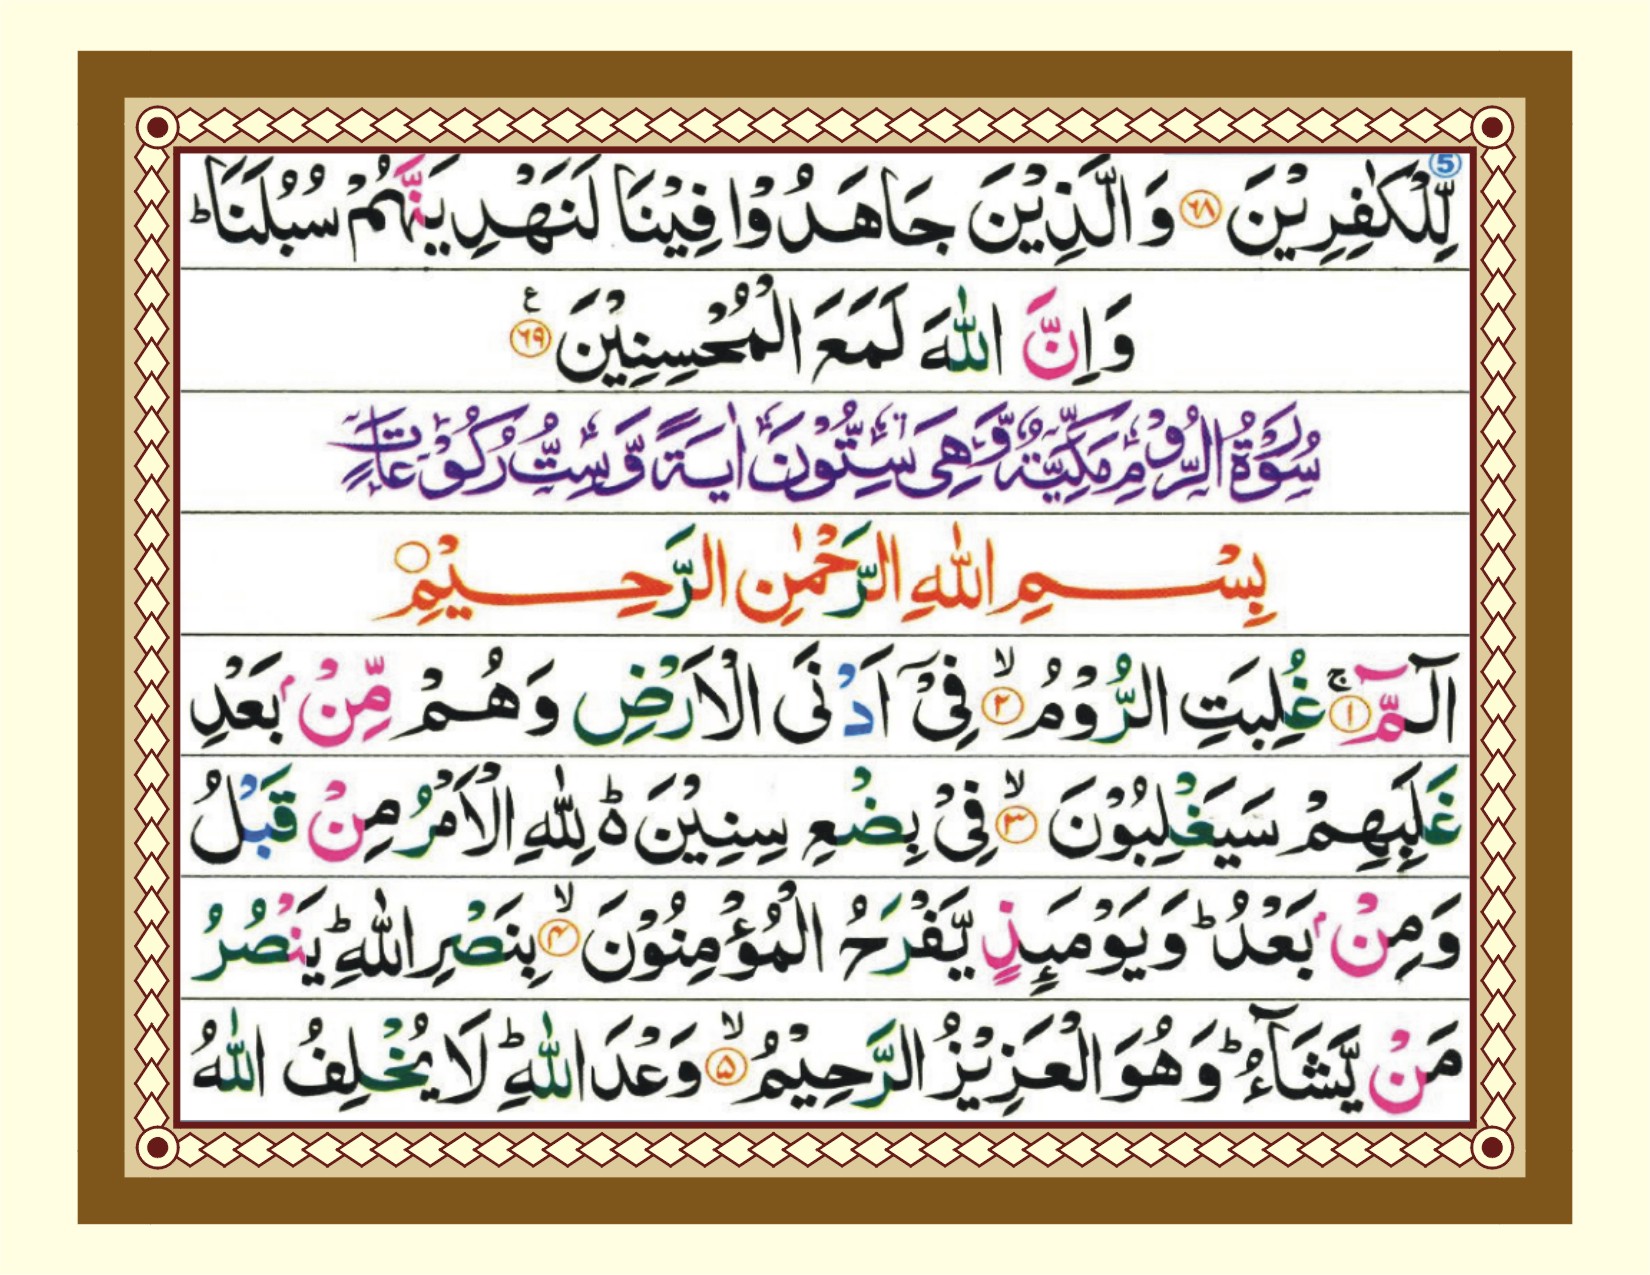 5
لِّلْكٰفِرِيْنَ ۶۸ وَ الَّذِيْنَ جَاهَدُوْا فِيْنَا لَنَهْدِيَنَّهُمْ سُبُلَنَا ؕ
وَ اِنَّ اللّٰهَ لَمَعَ الْمُحْسِنِيْنَ ۶۹ ع
سُوْرَةُ الرُّوْمِ مَكِّيَّةٌ وَّهِىَ سِتُّوْنَ اٰيَةً وَّسِتُّ رُكُوْعَاتٍ
بِسْمِ اللّٰهِ الرَّحْمٰنِ الرَّحِيْمِ
الٓمّٓ ۚ ۱ غُلِبَتِ الرُّوْمُ ۙ ۲ فِىْٓ اَدْنَى الْاَرْضِ وَهُمْ مِّنْۢ بَعْدِ
غَلَبِهِمْ سَيَغْلِبُوْنَ ۙ ۳ فِىْ بِضْعِ سِنِيْنَ ؕ لِلّٰهِ الْاَمْرُ مِنْ قَبْلُ
وَمِنْۢ بَعْدُ ؕ وَيَوْمَىِٕذٍ يَّفْرَحُ الْمُؤْمِنُوْنَ ۙ ۴ بِنَصْرِ اللّٰهِ ؕ يَنْصُرُ
مَنْ يَّشَآءُ ؕ وَهُوَ الْعَزِيْزُ الرَّحِيْمُ ۙ ۵ وَعْدَ اللّٰهِ ؕ لَا يُخْلِفُ اللّٰهُ